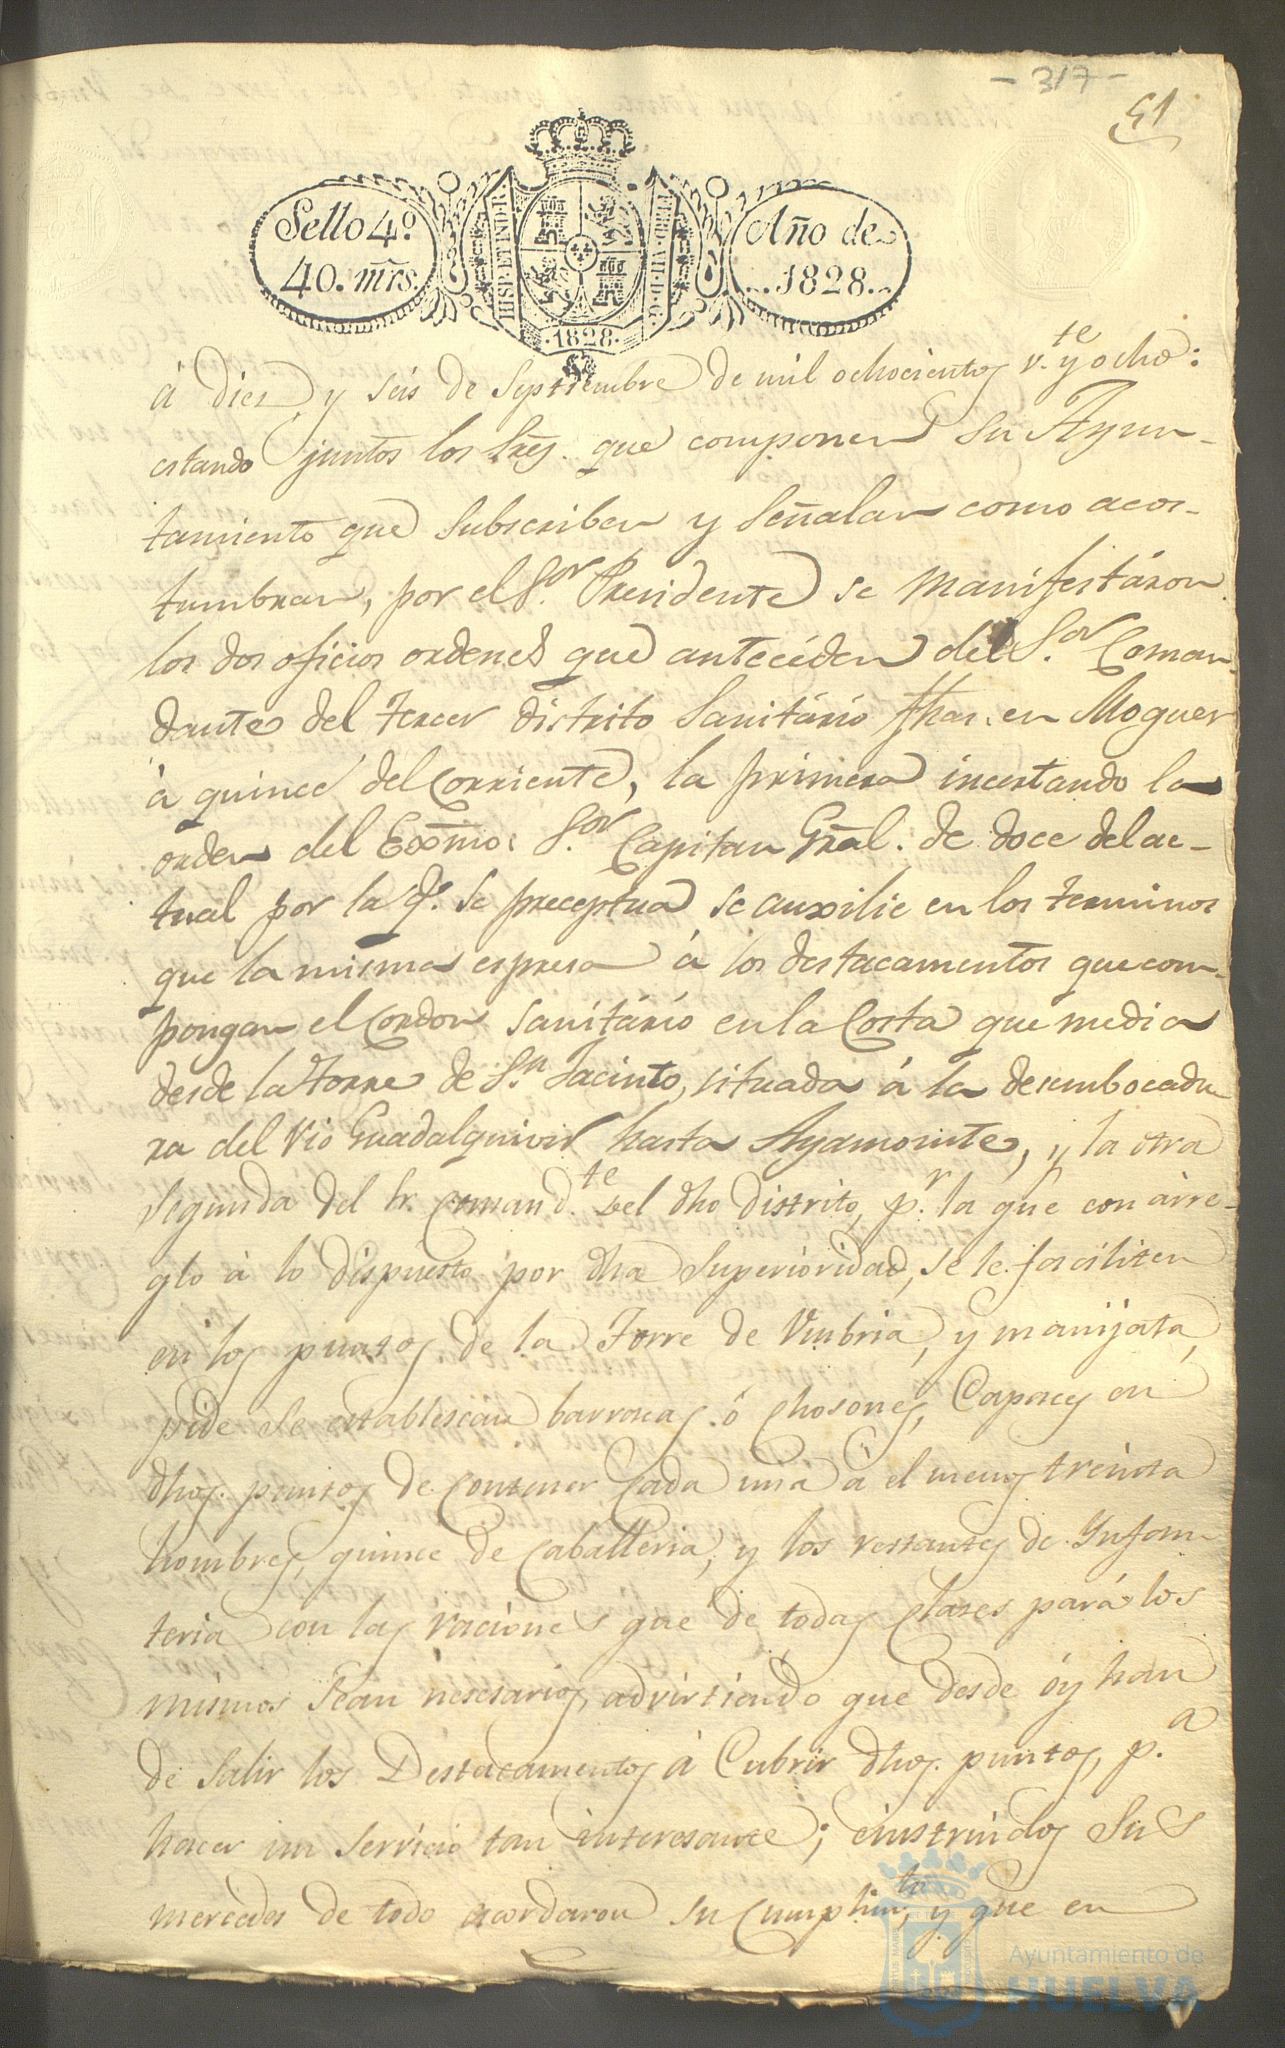 - 317 -
51
Sello 4º
40. mrs.
HISP. ET IND. R
FERD. VII. D. G.
Año de
1828.
·1828·
á diez y seis de Septiembre de mil ochocientos v.te y ocho:
estando juntos los Sres. que componen su Ayun-
tamiento que subscriben y señalan como acos-
tumbran, por el S.or Presidente se manifestáron
los dos oficios ordenes que antecéden del S.or Coman-
dante del tercer distrito Sanitário fhas. en Moguer
á quince del corriente, la primera incertando la
orden del Exmo. S.or Capitan Gral. de doce del ac-
tual por la q.e se preceptua se auxilie en los terminos
que la misma espresa á los destacamentos que com-
pongan el Cordon Sanitário en la Costa que media
desde la Torre de S.n Jacinto, situada á la desembocadu
ra del rio Guadalquivir hasta Ayamonte, y la otra
segunda del Sr. Comand.te del dho distrito, p.r la que con arre-
glo á lo dispuesto por dha Superioridad, se le faciliten
en los puntos de la Torre de Umbria, y manijata,
pide se establescan barracas ó chosones, Capaces en
dhos. puntos de contener cada una á el menos treinta
hombres, quince de Caballeria, y los restantes de Ynfan
teria con las raciones que de todas clases pará los
mismos sean nesesarios, advirtiendo que desde óy han
de salir los Destacamentos á Cubrir dhos. puntos, p.a
hacer un servicio tan interesante; é instruidos Sus
mercedes de todo acordaron su cumplim.to, y que en
Ayuntamiento de
HUELVA